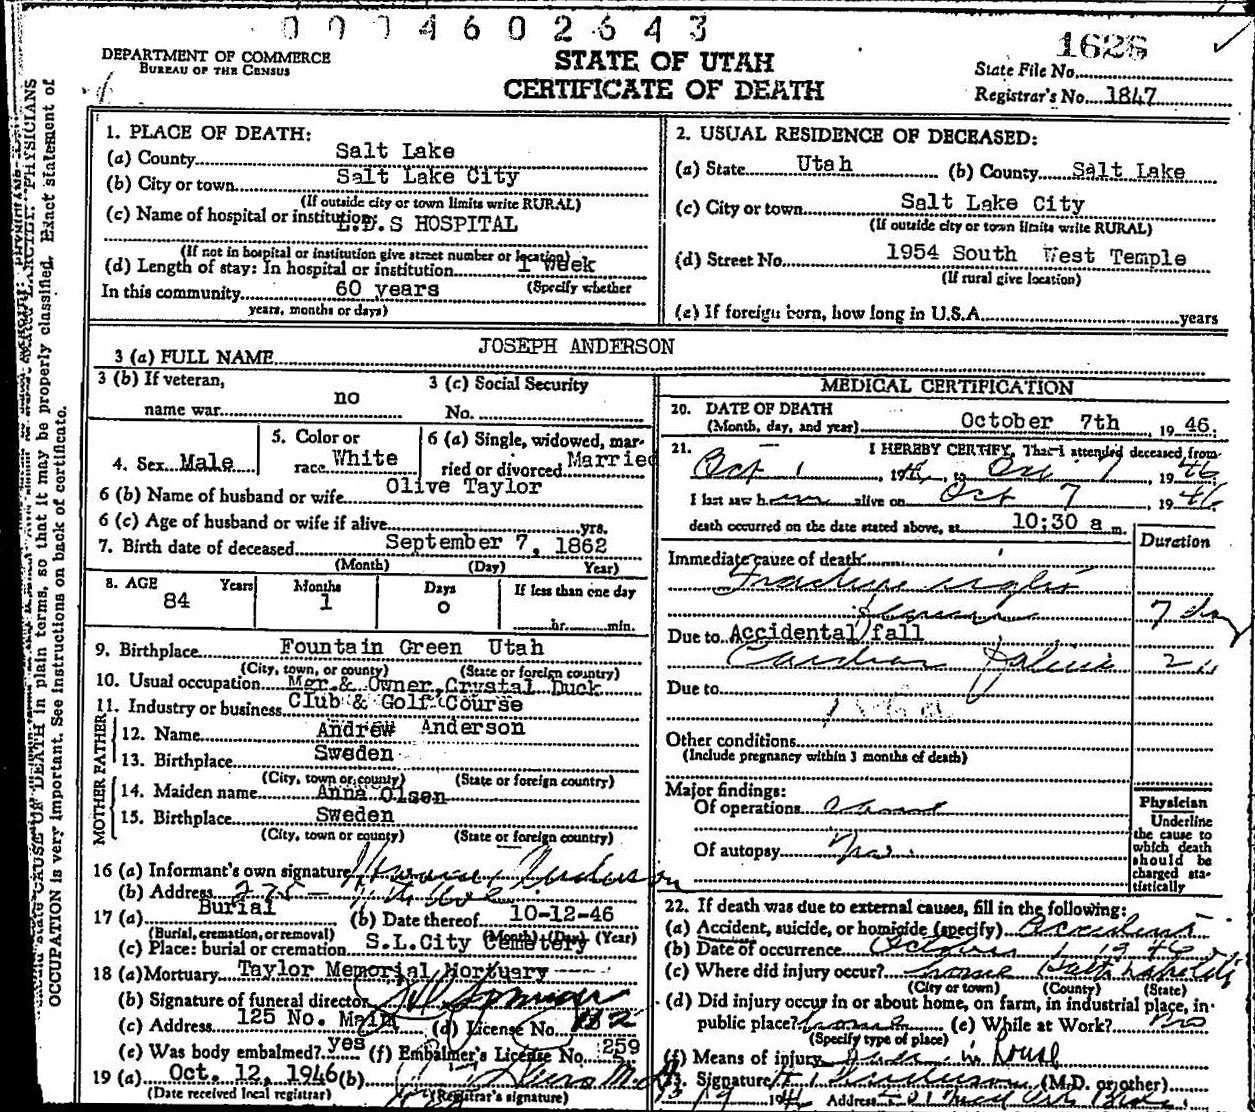 0 0 0 4 6 0 2 6 4 3
DEPARTMENT OF COMMERCE
BUREAU OF THE CENSUS
STATE OF UTAH
CERTIFICATE OF DEATH
State File No.
Registrar's No. 1847
1. PLACE OF DEATH:
(a) County Salt Lake
(b) City or town Salt Lake City
(If outside city or town limits write RURAL)
(c) Name of hospital or institution: L.D.S HOSPITAL
(If not in hospital or institution give street number or location)
(d) Length of stay: In hospital or institution 1 week
(Specify whether
In this community 60 years
years, months or days)
2. USUAL RESIDENCE OF DECEASED:
(a) State Utah (b) County Salt Lake
(c) City or town Salt Lake City
(If outside city or town limits write RURAL)
(d) Street No. 1954 South West Temple
(If rural give location)
(e) If foreign born, how long in U.S.A. years
3 (a) FULL NAME JOSEPH ANDERSON
3 (b) If veteran,
name war no
3 (c) Social Security
No.
4. Sex Male
5. Color or
race White
6 (a) Single, widowed, mar-
ried or divorced Married
6 (b) Name of husband or wife Olive Taylor
6 (c) Age of husband or wife if alive yrs.
7. Birth date of deceased September 7, 1862
(Month) (Day) Year)
8. AGE Years Months Days If less than one day
84 1 0
hr. min.
9. Birthplace Fountain Green Utah
(City, town, or county) (State or foreign country)
10. Usual occupation Mgr.& Owner,Crystal Duck
11. Industry or business Club & Golf Course
FATHER
12. Name Andrew Anderson
13. Birthplace Sweden
(City, town or county) (State or foreign country)
MOTHER
14. Maiden name Anna Olsen
15. Birthplace Sweden
(City, town or county) (State or foreign country)
16 (a) Informant's own signature Anderson
(b) Address
17 (a) Burial (b) Date thereof 10-12-46
(Burial, cremation, or removal) (Month) (Day) (Year)
(c) Place: burial or cremation S.L.City Cemetery
18 (a) Mortuary Taylor Memorial Mortuary
(b) Signature of funeral director
(c) Address 125 No. Main (d) License No.
(e) Was body embalmed? yes (f) Embalmer's License No. 259
19 (a) Oct. 12, 1946 (b)
(Date received local registrar) (Registrar's signature)
MEDICAL CERTIFICATION
20. DATE OF DEATH
(Month, day, and year) October 7th 19 46.
21. I HEREBY CERTIFY, That I attended deceased from
Oct 1, 1946, to Oct 7, 19 46
I last saw him alive on Oct 7, 19 46
death occurred on the date stated above, at 10:30 a m.
Duration
Immediate cause of death
Fracture right
7 day
Due to Accidental fall
Cardiac failure 2 "
Due to
Other conditions
(Include pregnancy within 3 months of death)
Major findings:
Of operations
Of autopsy
Physician
Underline
the cause to
which death
should be
charged sta-
tistically
22. If death was due to external causes, fill in the following:
(a) Accident, suicide, or homicide (specify) Accident
(b) Date of occurrence October 1 1946
(c) Where did injury occur? home Salt Lake City
(City or town) (County) (State)
(d) Did injury occur in or about home, on farm, in industrial place, in
public place? home (e) While at Work? no
(Specify type of place)
(f) Means of injury in house
23. Signature (M.D. or other)
Address
OCCUPATION is very important. See instructions on back of certificate.
CAUSE OF DEATH in plain terms, so that it may be properly classified. Exact statement of